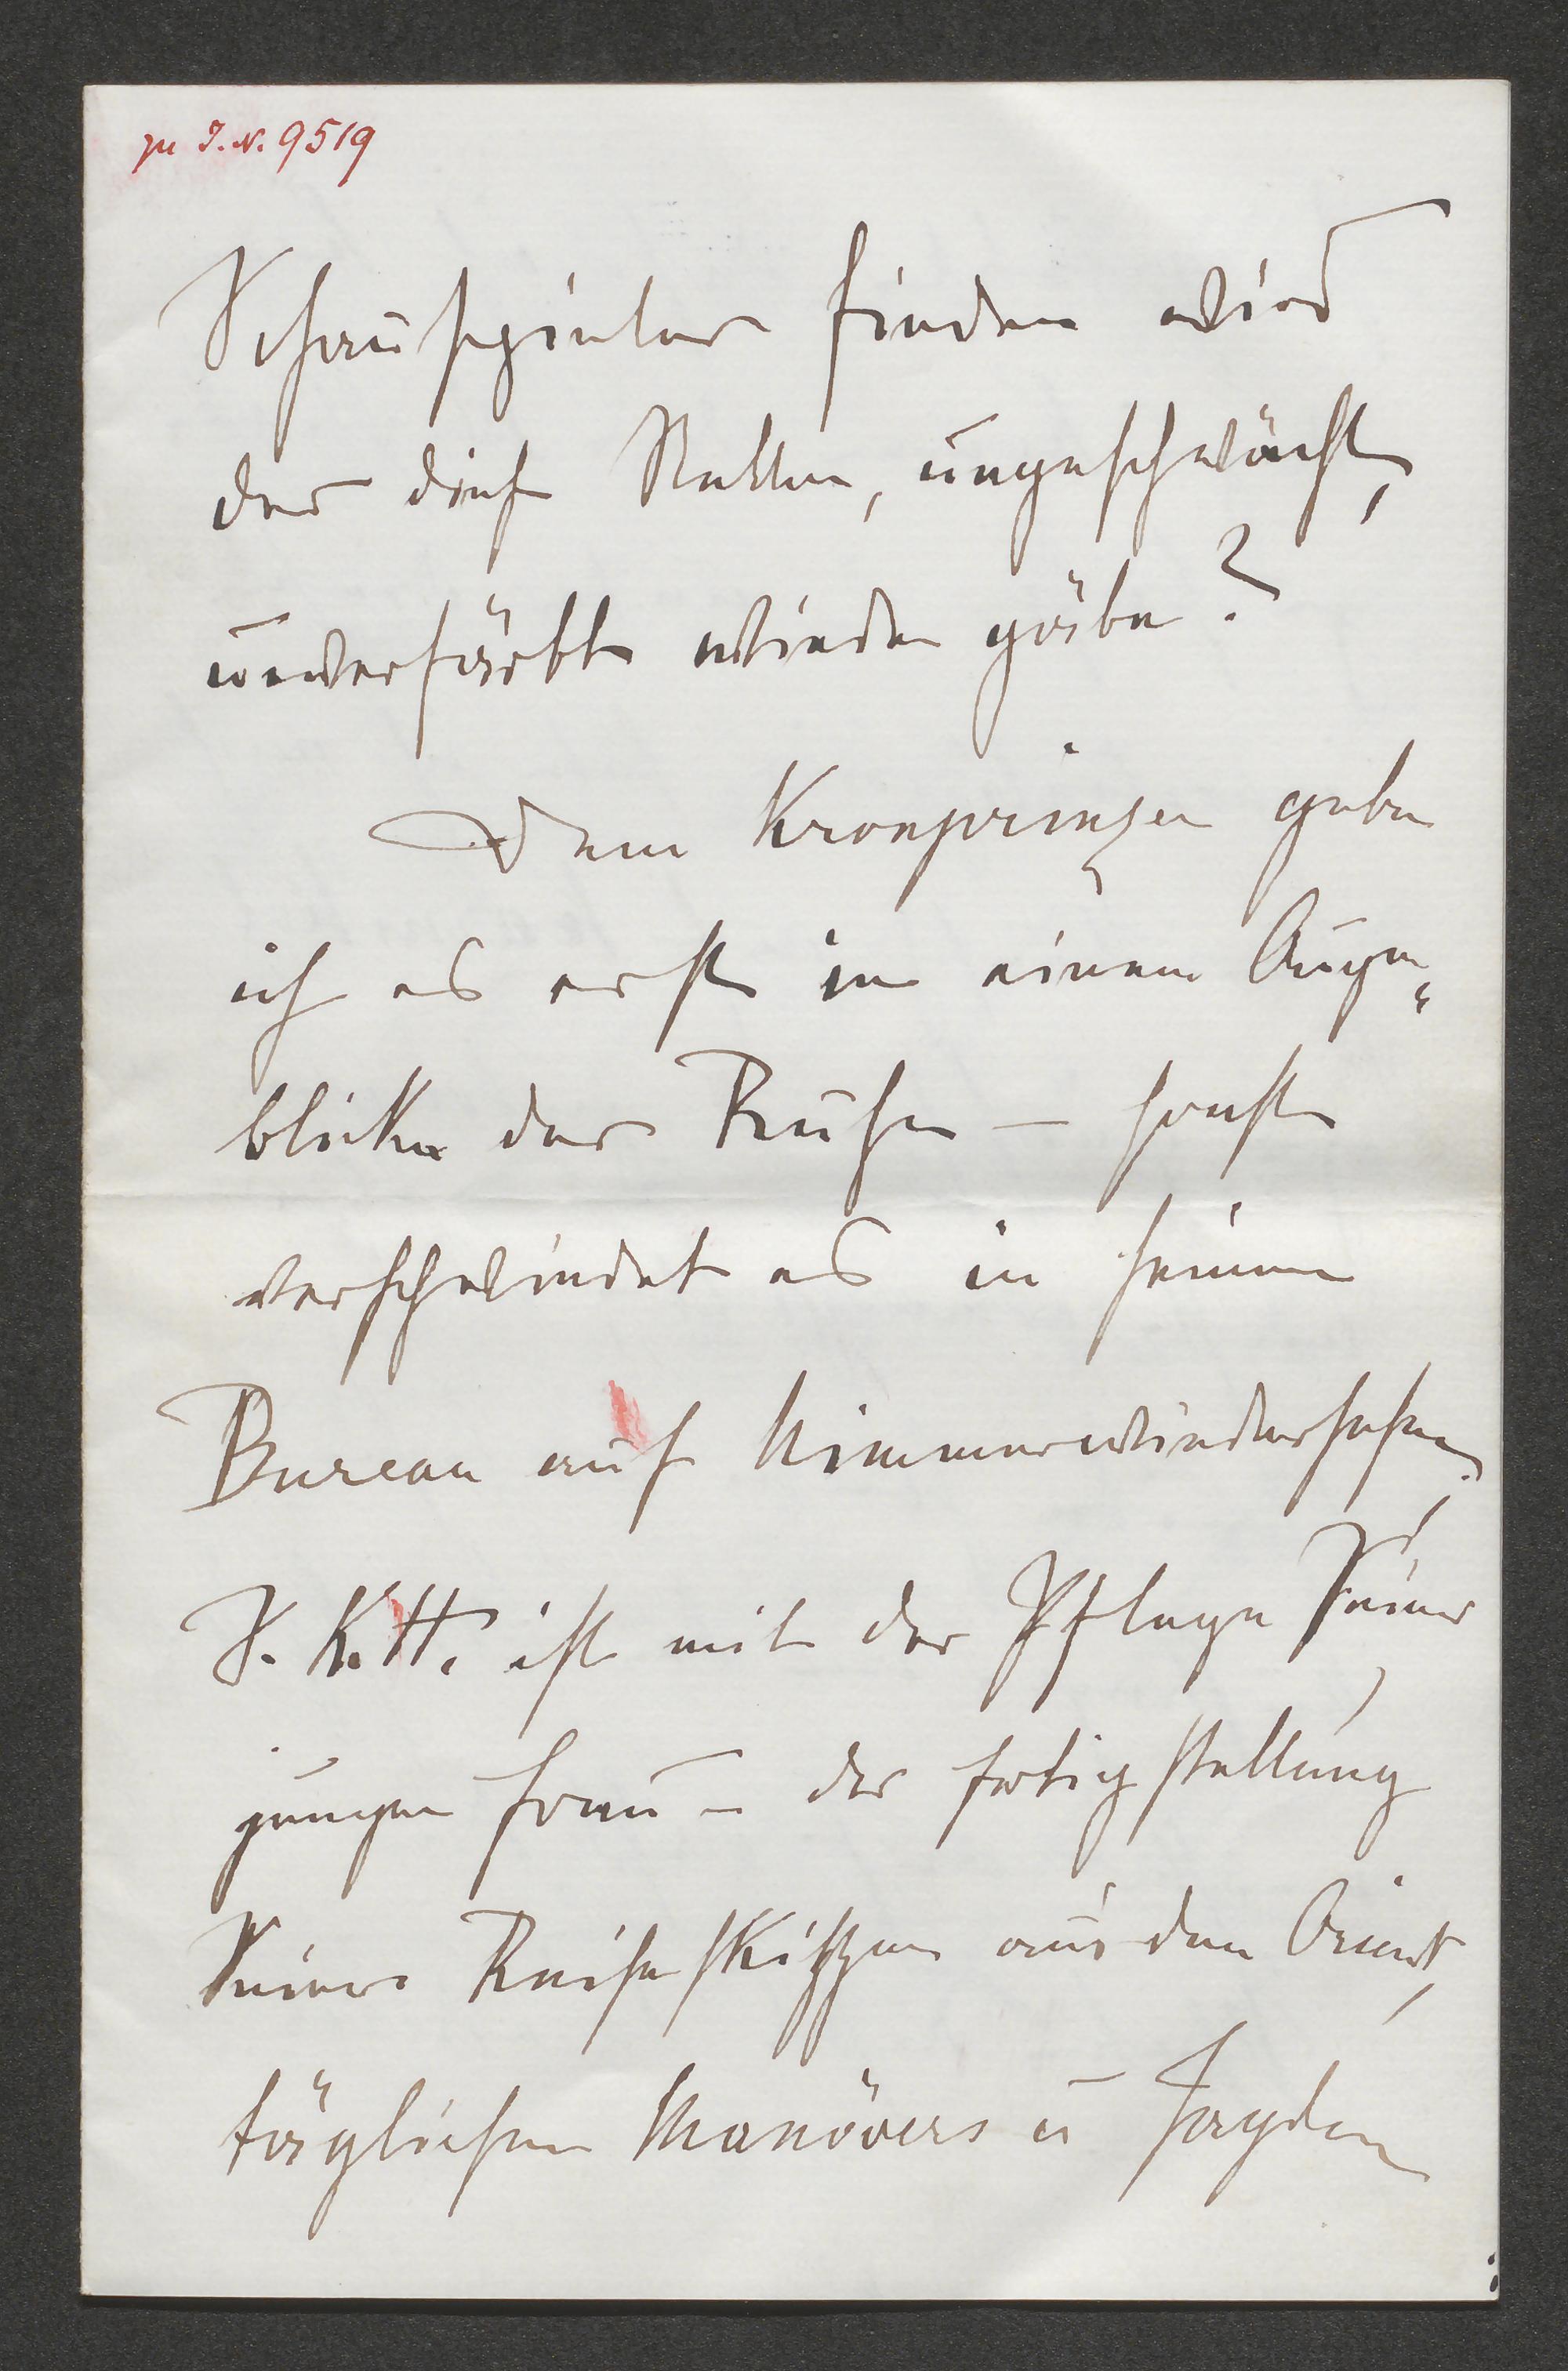 zu I.N. 9519
Schauspieler finden wird
der dies Stellen, ungeschwächt,
unverfärbt wieder gäbe?
Dem Kronprinzen gebe
ich es erst in einem Augen„
blicke der Ruhe – sonst
verschwindet es in seinem
Bureau auf Nimmerwiedersehen,
S. K. H. ist mit der Pflege Seiner
jungen Frau – der Fertigstellung
Seiner Reiseskizzen aus dem Orient,
täglichen Manövers u Jagden